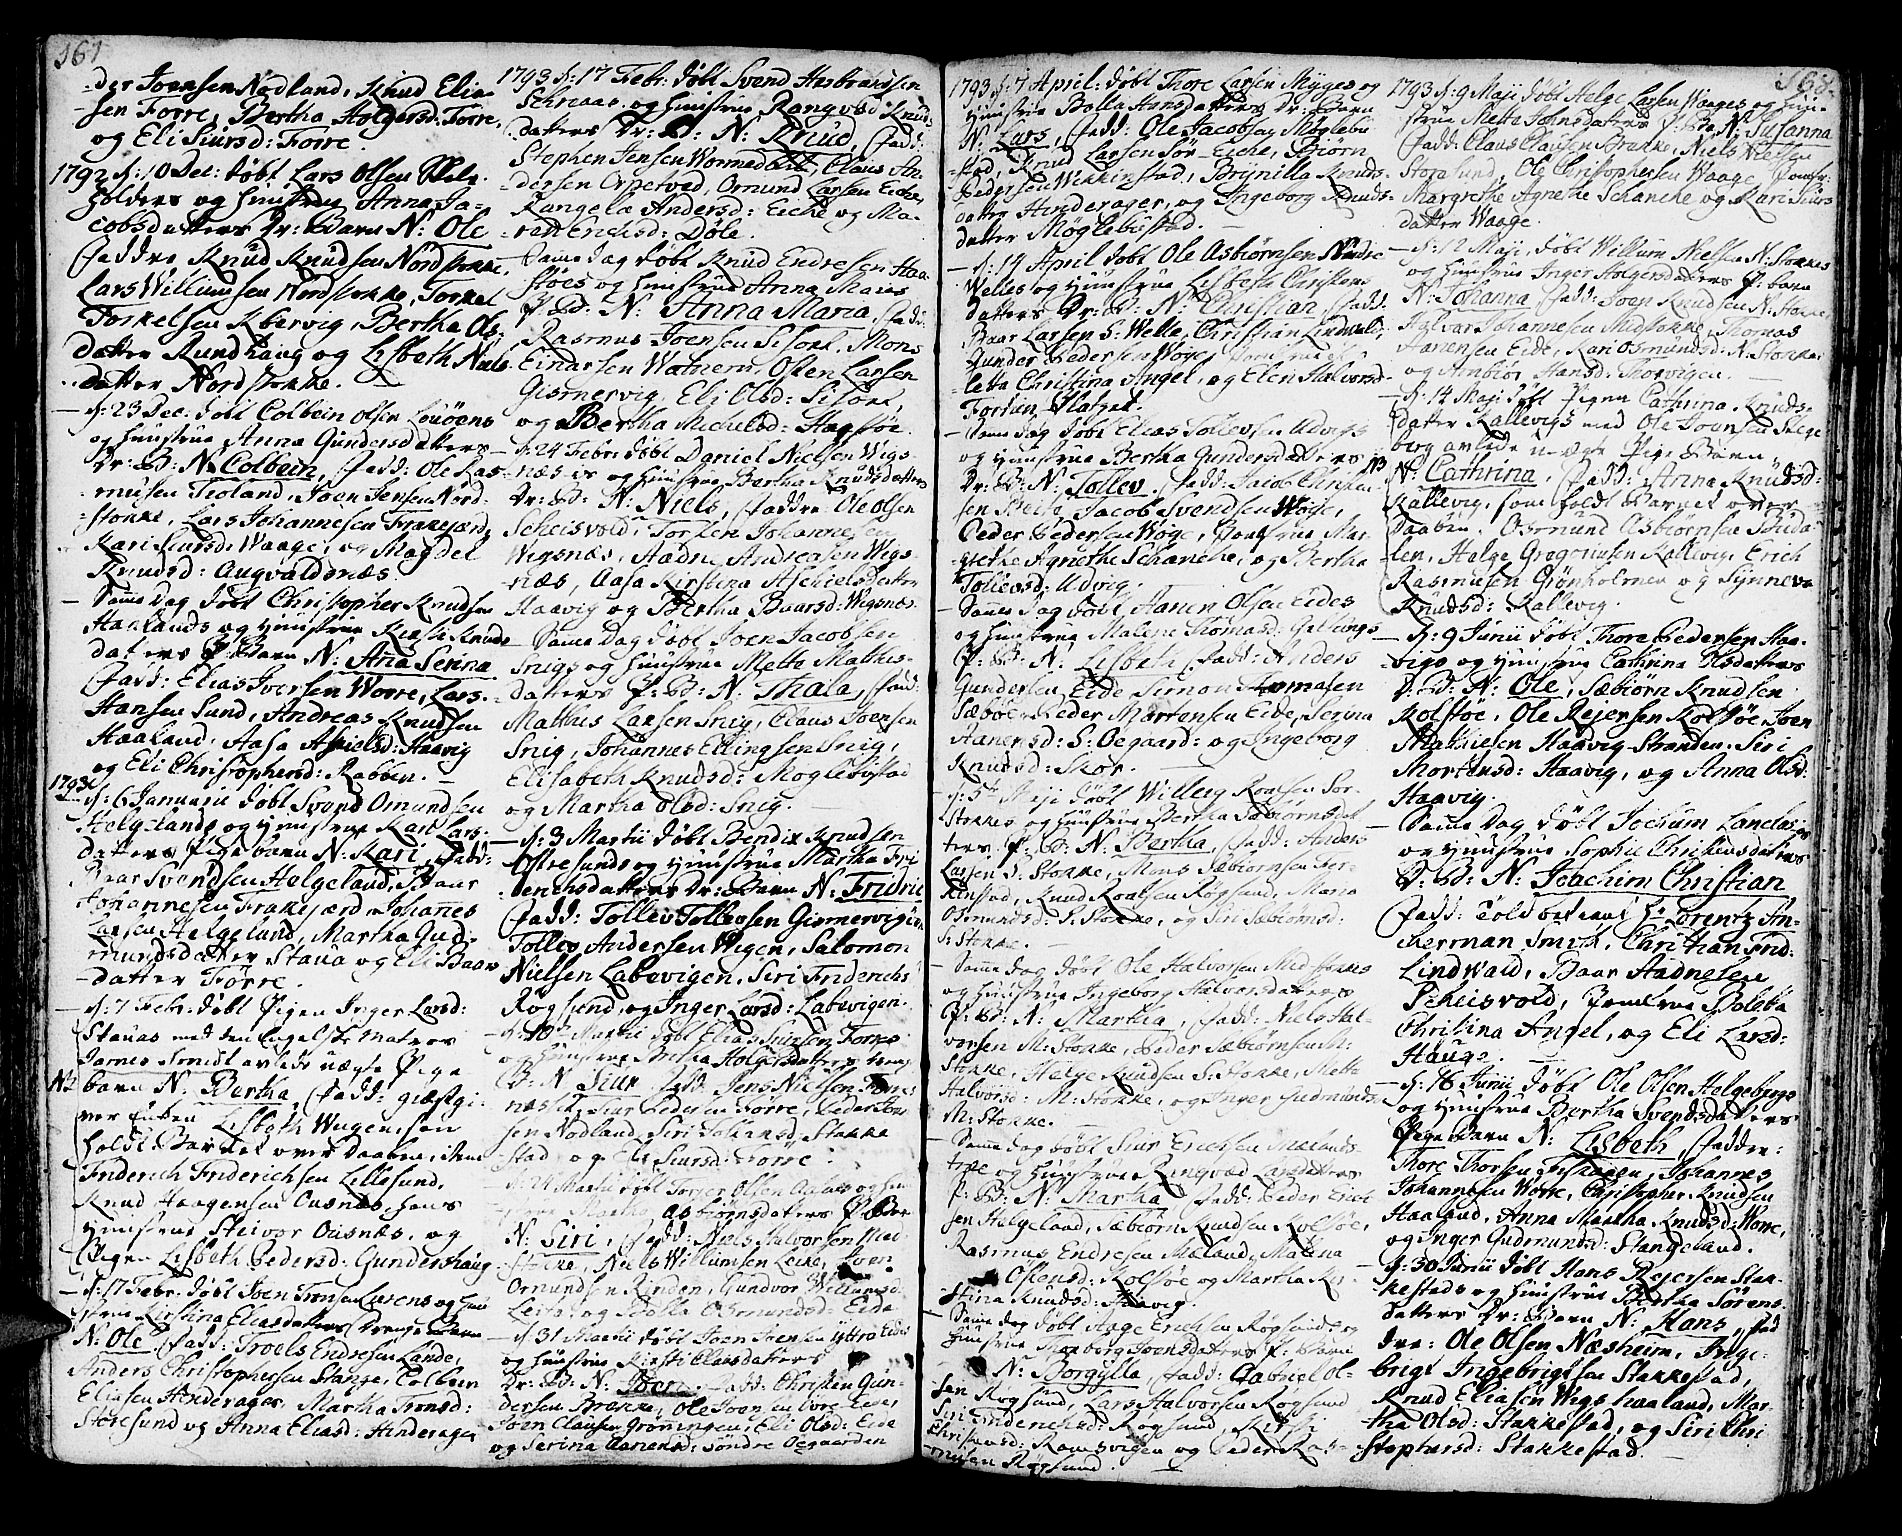 167
der Joensen Nodland, Knud Elia-
sen Forre, Bertha Holgersd: Torre,
og Eli Siursd: Forre.
1792 d: 10 Dec: døbt Lars Olsen
holders og Hustrue Anna Ja-
cobsdatters Dr: Barn N: Ole
Faddre Knud Knudsen Nordstokke,
Lars Willumsen Nordstokke, Torkel
Torkelsen Kberviig, Bertha Ols-
datter Rundhaug og Lisbeth Niels-
datter Nordstokke.
d: 23 Dec: døbt Colbein Olsen
og Hustrue Anna Gundersdatters
Dr: B: N: Colbein, Fadd: Ole Ras-
musen Tioland, Joen Jensen Nord-
stokke, Lars Johannesen Frakkejærd,
Kari Siursd: Waage, og Magdel
Knudsd: Augvaldsnæs.
Samme Dag døbt Christopher Knudsen
Haalands og Hustrue Kirsti Knuds
datters P: Barn N: Ana Serina
Fadd: Elias Iversen Worre, Lars
Hansen Sund, Andreas Knudsen
Haaland, Aasa Haavig
og Eli Christophersd: Rabben.
1793 d: 6 Januarii døbt Svend Omundsen
Helgelands og Hustrue Kari Lars-
datters Pige barn N: Kari, Fadd:
Baar Svendsen Helgeland, Baar
Johannesen Frakkejærd, Johannes
Larsen Helgeland, Martha Gud-
mundsdatter Stava og Eli Baars
datter Førre.
d: 7 Febr: døbt Pigen Inger Larsd:
Stavas med den Engelske Matros
James Smidt avlede uægte Pige
N2 barn N: Bertha, Fadd: giæstgi-
ver Enken Lisbeth Wugen, som
holdt Barnet over Daaben, item
Friderich Friderichsen Lillesund,
Knud Haagensen Ousnæs, hans
Hustrue Steivor Ousnæs, og
Pigen Lisbeth Pedersd: Gundershaug
d: 17 Febr: døbt Joen Tronsen Larens og Hu-
strue Kirstina Eliasdatters Drenge Barn
N: Ole Fadd: Troels Endresen Lande,
Anders Christophersen Stange, Colbein
Eliasen Hinderager, Martha Tronsd:
Storesund og Anna Eliasd: Hinderager
1793 d: 17 Febr: døbt Svend Hasbrandsen
Schraas og Hustrue Rangved Knuds
datters Dr: B: N: Knud, Fadd:
Stephen Jensen Wormedahl, Claus An-
dersen Orpetved, Ormund Larsen Eiche,
Rangela Andersd: Eiche og Ma-
ret Erichsd: Døle.
Samme Dag døbt Knud Endresen Haa-
støes og Hustrue Anna Maries
P: B: N: Anna Maria, Fadd:
Rasmus Joensen Sisore, Mons
Einarsen Watnem, Osten Larsen
Gismervig, Eli Olsd: Sisore,
og Bertha Michelsd: Hagstøe.
d: 24 Febr: døbt Daniel Nielsen Wigs-
næses og Hustrue Bertha Knudsdatters
Dr: B: N: Niels, Faddre: Ole Olsen
Scheisvold, Torsten Johannesen
Wigsnæs, Aadne Andreasen Wigs-
næs, Aasa Kirstina Aschielsdatter
Haavig og Bertha Baarsd: Wigsnæs.
Samme Dag døbt Joen Jacobsen
Snigs og Hustrue Mette Mathis-
datters P: B: N: Thala, Fad:
Mathis Larsen Snig, Claus Joensen
Snig, Johannes Ellingsen Snig,
Elisabeth Knudsd: Møglebustad
og Martha Olsd: Snig.
d: 3 Martii døbt Bendix Knudsen
Ostresunds og Hustrue Martha Fri-
derichsdatters Dr: Barn N: Fridric
Fadd: Tollev Tollevsen Gismervigen,
Tollev Andersen Wigen, Salomon
Nielsen Labevigen, Siri Friderichs
Røgsund, og Inger Larsd: Labevigen.
d: 10 Martii døbt Elias Siursen Forres
og Hustrue Bertha Holgersdatters
B: N: Siur Fadd: Jens Nielsen
Siur Pedersen Torre, Peder Joen
sen Nodland, Siri Stakke
stad og Eli Siursd: Forre.
d: 24 Martii døbt Torger Olsen og Hu-
strue Martha Asbiørnsdatters P: Barn
N: Siri, Fadd: Niels Halvorsen Med-
stokke, Niels Willumsen Leite, Iver
Omundsen Rinden, Gundvor Willumsd:
Leite og Bolla Osmundsd: Eide
d: 31 Martii døbt Joen Joensen Yttre Eides
og Hustrue Kirsti Clausdatters
Dr: B: N: Joen, Fadd: Christen Gun-
dersen Brække, Ole Joensen Eide,
Joen Clausen Grønningen, Eli Olsd: Eide
og Serina Aanensd: Søndre Oegaarden
168
1793 d: 7 April: døbt Thore Larsen Myges og
Hustrue Bolla Hansdatters Dr: Barn
N: Lars, Fadd: Ole Jacobsen Møglebu
stad, Knud Larsen Sør-Eiche, Biørn
Pedersen Wikkinstad, Brynilla Knuds-
datter Hinderager, og Ingeborg Knuds-
datter Møglebustad.
d: 14 April døbt Ole Asbiørnsen Nordre
Welles og Hustrue Lisbeth Christens
datters Dr: B: N: Christian, Fadd:
Baar Larsen S: Welle, Christian Lindwald,
Gunder Pedersen Woge,
Christina Angel, og Elen Halvorsd
Fortun.
Samme Dag døbt Elias Tollevsen Udvigs
og Hustrue Bertha Gundersdatters
Dr: B: N: Tollev, Fadd: Jacob Christen
sen, Jacob Svendsen Woge,
Peder Pedersen Woge, Mar-
grethe Agnethe Schancke, og Bertha
Tollevsd: Udvig.
Samme Dag døbt Aanen Olsen Eides
og Hustrue Malene Thomasd:
P: B: N: Lisbeth Fadd: Anders
Gundersen Eide, Simon Thomasen
Sæbøe, Peder Mortensen Eide, Serina
Aanensd: S: Oegaard: og Ingeborg
Knudsd: Skor.
d: 5te Maji døbt Willerg Roalsen Sor-
Stokkes og Hustrue Bertha Sæbiørnsdat
ters P: B: N: Bertha, Fadd: Anders
Larsen S: Stokke, Mons Sæbiørnsen
Knud Roalsen Røgsund, Maria
Osmundsd: S: Stokke, og Siri Sæbiørnsd:
S: Stokke.
Samme Dag døbt Ole Halvorsen Midstokkes
og Hustrue Ingeborg Halvorsdatters
P: B: N: Martha, Fadd: Niels Hal-
vorsen M: Stokke, Peder Sæbiørnsen M:
Stokke, Helge Knudsen S: Stokke, Mette
Halvorsd: M: Stokke, og Inger Gudmunds
M: Stokke.
Samme Dag døbt Siur Erichsen
og Hustrue Ringved Larsdatters
P: B: N: Martha Fadd: Peder
sen Helgeland, Sæbiørn Knudsen Kolstøe,
Rasmus Endresen Mæland, Malena
Østensd: Kolstøe og Martha Kir-
stina Knudsd: Haavig.
Samme Dag døbt Aage Erichsen Røgsund og
Hustrue Joensdatters P: Barn
N: Borgylla Fadd: Gabriel Ol-
sen Røgsund, Lars Halvorsen Røgsund
Siri Friderichsd: Røgsund, Kirsti
Christensd: Ramsvigen og Peder Ras-
musen Røgsund.
1793 d: 9 Maji døbt Helge Larsen Waages og Hu-
strue Mette Joensdatters P: B: N: Susanna
Fadd: Claus Clausen Brække, Niels Nielsen
Storesund, Ole Christophersen Waage,
Margrethe Agnethe Schancke og Kari Siurs
datter Waage.
d: 12 Maji døbt Willum Nielsen N: Stokkes
og Hustrue Inger Holgersdatters P: barn
N: Johanna Fadd: Joen Knudsen N: Stokke,
Halvar Johannesen Midstokke, Thomas
Aanensen Eide, Kari Osmundsd: N: Stokke
og Ambior Hansd: Thorvigen.
d: 14 Maji døbt Pigen Cathrina Knuds-
datter Kallevigs med Ole Joensen Helge
berg avlede uægte Pige Barn
N3 N: Cathrina, Fadd: Anna Knudsd:
Kallevig, som holdt Barnet over
Daaben, Osmund Asbiørnsen
Helge Gregoriusen Kallevig, Erich
Rasmusen Giønholmen og Synneva
Knudsd: Kallevig.
d: 9 Junii døbt Thore Pedersen Haa-
vigs og Hustrue Cathrina Olsdatters
D: B: N: Ole, Sæbiørn Knudsen
Kolstøe, Ole Rejersen Kolstøe, Joen
Mathiesen Haavig-Stranden, Siri
Mortensd: Haavig, og Anna Olsd:
Haavig.
Samme Dag døbt Jochum
og Hustrue Sophie Christensdatters
D: B: N: Joachim Christian
Fadd: Told betient Hr: Lorentz An-
cherman Smith, Christian Frid:
Lindwald, Baar Aadnesen
Scheisvold, Jomfrue Boleba
Christina Angel, og Eli Larsd:
Hauge.
d: 16 Junii døbt Ole Olsen Helgebergs
og Hustrue Bertha Svendsdatters
Pige Barn N: Lisbeth, Fadder:
Thore Thorsen, Johannes
Johannesen Worre, Christopher Knudsen
Haaland, Anna Martha Knudsd: Worre,
og Inger Gudmundsd: Stangeland.
d: 30 Junii døbt Hans Rejersen Stak-
kestads og Hustrue Bertha Sørens-
datters Dr: Barn N: Hans, Fad
dre: Ole Olsen Næsheim, Inge-
brigt Ingebrigtsen Stakkestad,
Knud Eliasen Wigs haaland, Mar-
tha Olsd: Stakkestad, og Siri Chri
stophersd: Stakkestad.